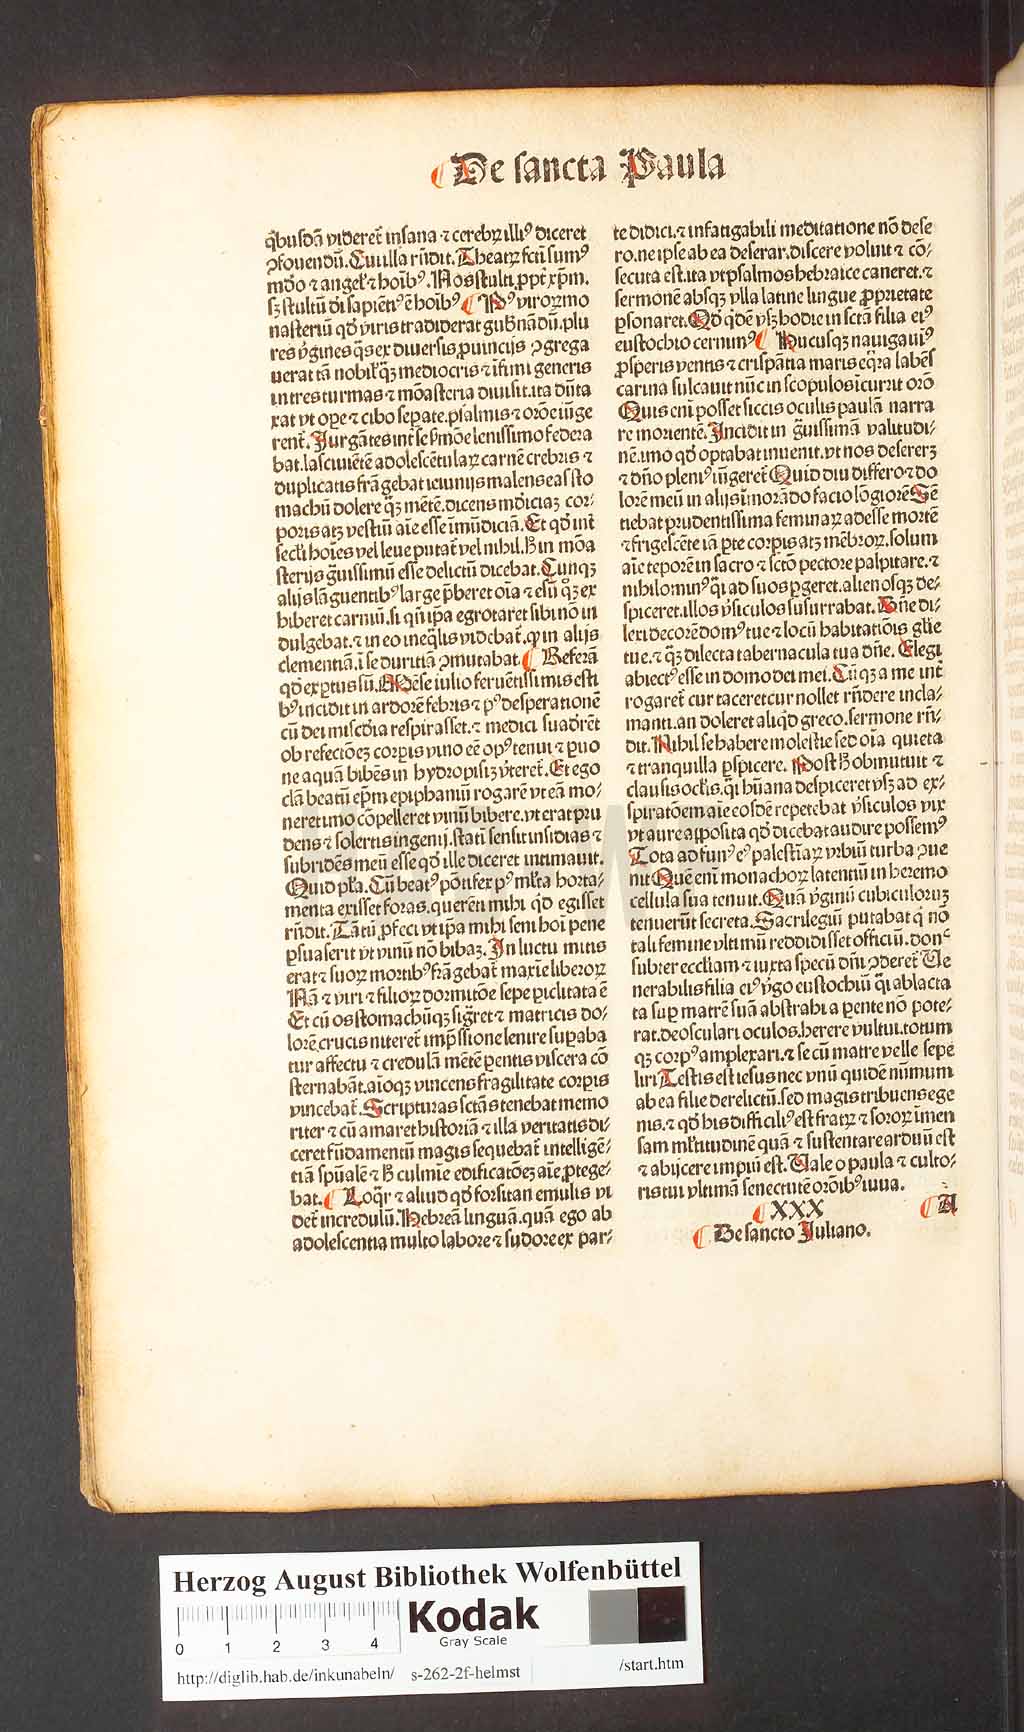 De sancta Paula
q̄busdā videret᷑ insana ⁊ cerebꝝ illiꝰ diceret
ↄfouendū. Cui illa rn̄dit. Theatꝝ fcti sumꝰ
mdo ⁊ angel' ⁊ hoibꝰ. Nos stulti ꝓpt xp̄m.
sꝫ stultū di sapientiꝰ ē hoibꝰ Pꝰ viroꝝ mo
nasteriū qd' viris tradiderat gub'nādū. plu
res v'gines q̄s ex diuersis ꝓuincijs ↄgrega
uerat tā nobiles qꝫ mediocris ⁊ ifimi generis
in tres turmas ⁊ mōasteria diuisit. ita dn̄ta
xat vt oꝑe ⁊ cibo seꝑate. psalmis ⁊ orōe iūge
rent᷑. Jurgātes int᷑ se s'mōe lenissimo federa
bat. lasciuiētē adolescētulaꝝ carnē crebris ⁊
duplicatis frāgebat ieiunijs malens eas sto
machū dolere qꝫ mētē. dicens mōiciaꝫ cor⸗
poris atqꝫ vestiū aīe esse īmūdiciā. Et qd' int᷑
secl'i hoīes vel leue putat᷑ vel nihil. h' in mōa
sterijs g̈uissimū esse delictū dicebat. Cunqꝫ
alijs lāguentibꝰ large p̄beret oīa ⁊ esū qꝫ ex
hiberet carniū. si qn̄ ip̄a egrotaret sibi nō in
dulgebat. ⁊ in eo ineq̄lis videbat᷑. ꝙ in alijs
clementiā. ī se duritiā ↄmutabat. Referā
qd' exꝑtus sū. Mēse iulio feruētissimis esti
bꝰ incidit in ardorē febris ⁊ pꝰ desperationē
cū dei miscdia respirasset. ⁊ medici suaderēt
ob refectōeꝫ corꝑis vino eē opꝰ tenui ⁊ puo
ne aquā bibēs in hydropisiꝫ v'teret᷑. Et ego
clā beatū ep̄m epiphaniū rogarē vt eā mo⸗
neret imo cōpelleret vinū bibere. vt erat pru
dens ⁊ solertis ingenij. statī sensit insidias ⁊
subridēs meū esse qd' ille diceret intimauit.
Quid pl'a. Cū beatꝰ pōtifex pꝰ ml'ta horta⸗
menta exisset foras. querēti mihi qd' egisset
rn̄dit. Tātū ꝓfeci vt ip̄a mihi seni hoi pene
ꝑsuaserit vt vinū nō bibaꝫ. In luctu mitis
erat ⁊ suoꝝ mortibꝰ frāgebat᷑ maxīe liberoꝝ
Nā ⁊ viri ⁊ filioꝝ dormitōe sepe ꝑiclitata ē
Et cū os stomachūqꝫ sig'ret ⁊ matricis do⸗
lorē crucis niteret᷑ imp̄ssione lenire supaba
tur affectu ⁊ credulā mētē ꝑentis viscera cō
sternabāt. aīoqꝫ vincens fragilitate corꝑis
vincebat᷑. Scripturas sctās tenebat memo
riter ⁊ cū amaret historiā ⁊ illa veritatis di⸗
ceret fūdamentū magis sequebat᷑ intelligē⸗
tiā spūalē ⁊ h' culmīe edificatōeꝫ aīe ꝓtege⸗
bat. Loqr̄ ⁊ aliud qd' forsitan emulis vi
det᷑ incredulū. Hebreā linguā. quā ego ab
adolescentia multo labore ⁊ sudore ex par⸗
te didici. ⁊ infatigabili meditatione nō dese
ro. ne ipse ab ea deserar. discere voluit ⁊ cō⸗
secuta est. ita vt psalmos hebraice caneret. ⁊
sermonē absqꝫ vlla latine lingue ꝓprietate
ꝑsonaret. Qd' qdē vsqꝫ hodie in sctā filia eiꝰ
eustochio cernimꝰ Hucusqꝫ nauigauiꝰ
ꝓsperis ventis ⁊ crispātia maris eq̄ra labēs
carina sulcauit nūc in scopulos icurrit orō
Quis eni posset siccis oculis paulā narra
re morientē. Incidit in g̈uissimā valitudi⸗
nē. imo qd' optabat inuenit. vt nos desereret
⁊ dn̄o pleniꝰ iūgeret᷑ Quid diu differo ⁊ do
lorē meū in alijs imorādo facio lōgiorē Sē
tiebat prudentissima feminaꝝ adesse mortē
⁊ frigescēte iā ꝑte corꝑis atqꝫ mēbroꝝ. solum
aīe teporē in sacro ⁊ scto pectore palpitare. ⁊
nihilominꝰ q̄si ad suos ꝑgeret. alienosqꝫ de⸗
spiceret. illos v'siculos susurrabat. Dn̄e di⸗
lexi decorē domꝰ tue ⁊ locū habitatiōis gl'ie
tue. ⁊ qꝫ dilecta tabernacula tua dn̄e. Elegi
abiectꝰ esse in domo dei mei. Cūqꝫ a me int᷑
rogaret᷑ cur taceret cur nollet rn̄dere incla⸗
manti. an doleret aliqd' greco. sermone rn̄⸗
dit. Nihil se habere molestie sed oīa quieta
⁊ tranquilla ꝑspicere. Post h' obmutuit ⁊
clausis ocl'is. q̄si hūana despiceret vsqꝫ ad ex⸗
spiratōem aīe eosdē repetebat v'siculos vix
vt aure apposita qd' dicebat audire possemꝰ
Tota ad funꝰ eꝰ palestīaꝝ vrbiū turba ↄue
nit Quē eni monachoꝝ latentiū in heremo
cellula sua tenuit. Quā v'ginū cubiculoruꝫ
tenuerūt secreta. Sacrilegiū putabat q̄ nō
tali femine vltimū reddidisset officiū. donᶜ
subter eccl'iam ⁊ iuxta specū dn̄i ↄderet᷑ Ue
nerabilis filia eiꝰ v'go eustochiū q̄si ablacta
ta suꝑ matrē suā abstrahi a ꝑente nō pote⸗
rat. deosculari oculos. herere vultui. totum
qꝫ corpꝰ amplexari. ⁊ se cū matre velle sepe
liri Testis est iesus nec vnū quidē nūmum
ab ea filie derelictū. sed magis tribuens ege
nis. ⁊ qd' his difficiliꝰ est fratꝝ ⁊ soroꝝ īmen
sam ml'titudinē quā ⁊ sustentare arduū est
⁊ abijcere impiū est. Uale o paula ⁊ culto⸗
ris tui vltimā senectutē orōibꝰ iuua.
XXX A
De sancto Juliano.
Herzog August Bibliothek Wolfenbüttel
Kodak
Gray Scale
0 1 2 3 4
http://diglib.hab.de/inkunabeln/ s-262-2f-helmst /start.htm